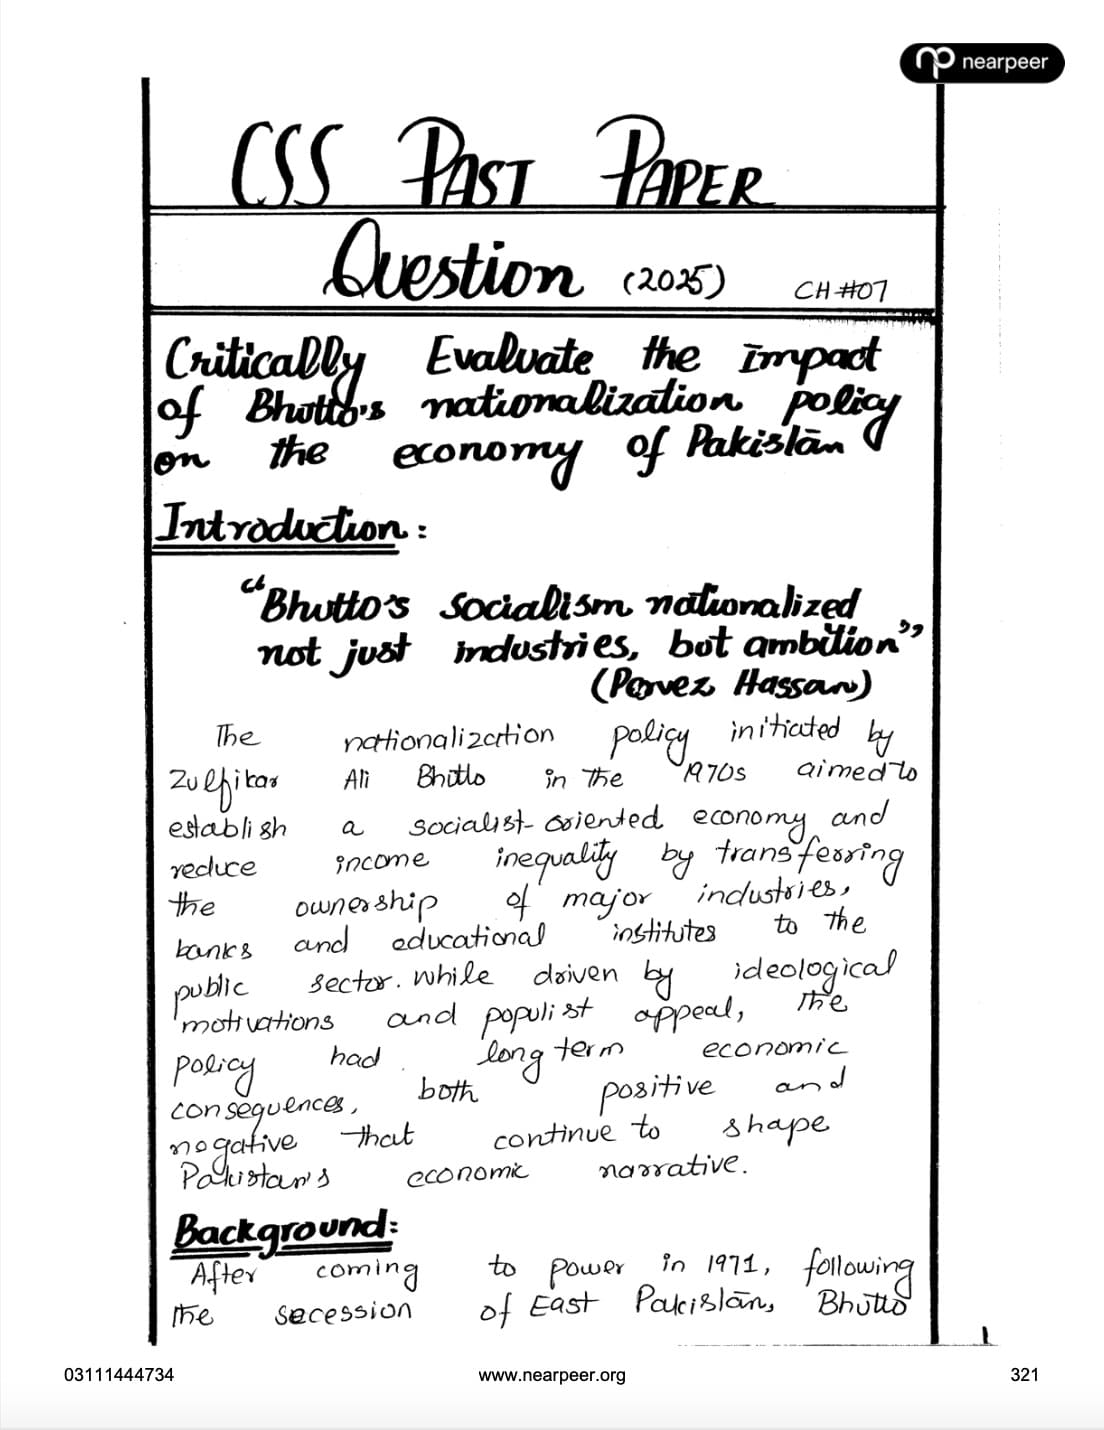 nearpeer
CSS PAST PAPER
Question (2025) CH#07
Critically Evaluate the impact
of Bhutto's nationalization policy
on the economy of Pakistan
Introduction:
"Bhutto's socialism nationalized
not just industries, but ambition"
(Pervez Hassan)
The nationalization policy initiated by
Zulfikar Ali Bhutto in the 1970s aimed to
establish a socialist-oriented economy and
reduce income inequality by transferring
the ownership of major industries,
banks and educational institutes to the
public sector. while driven by ideological
motivations and populist appeal, the
policy had long term economic
consequences, both positive and
negative that continue to shape
Pakistan's economic narrative.
Background:
After coming to power in 1971, following
the secession of East Pakistan, Bhutto
03111444734 www.nearpeer.org 321